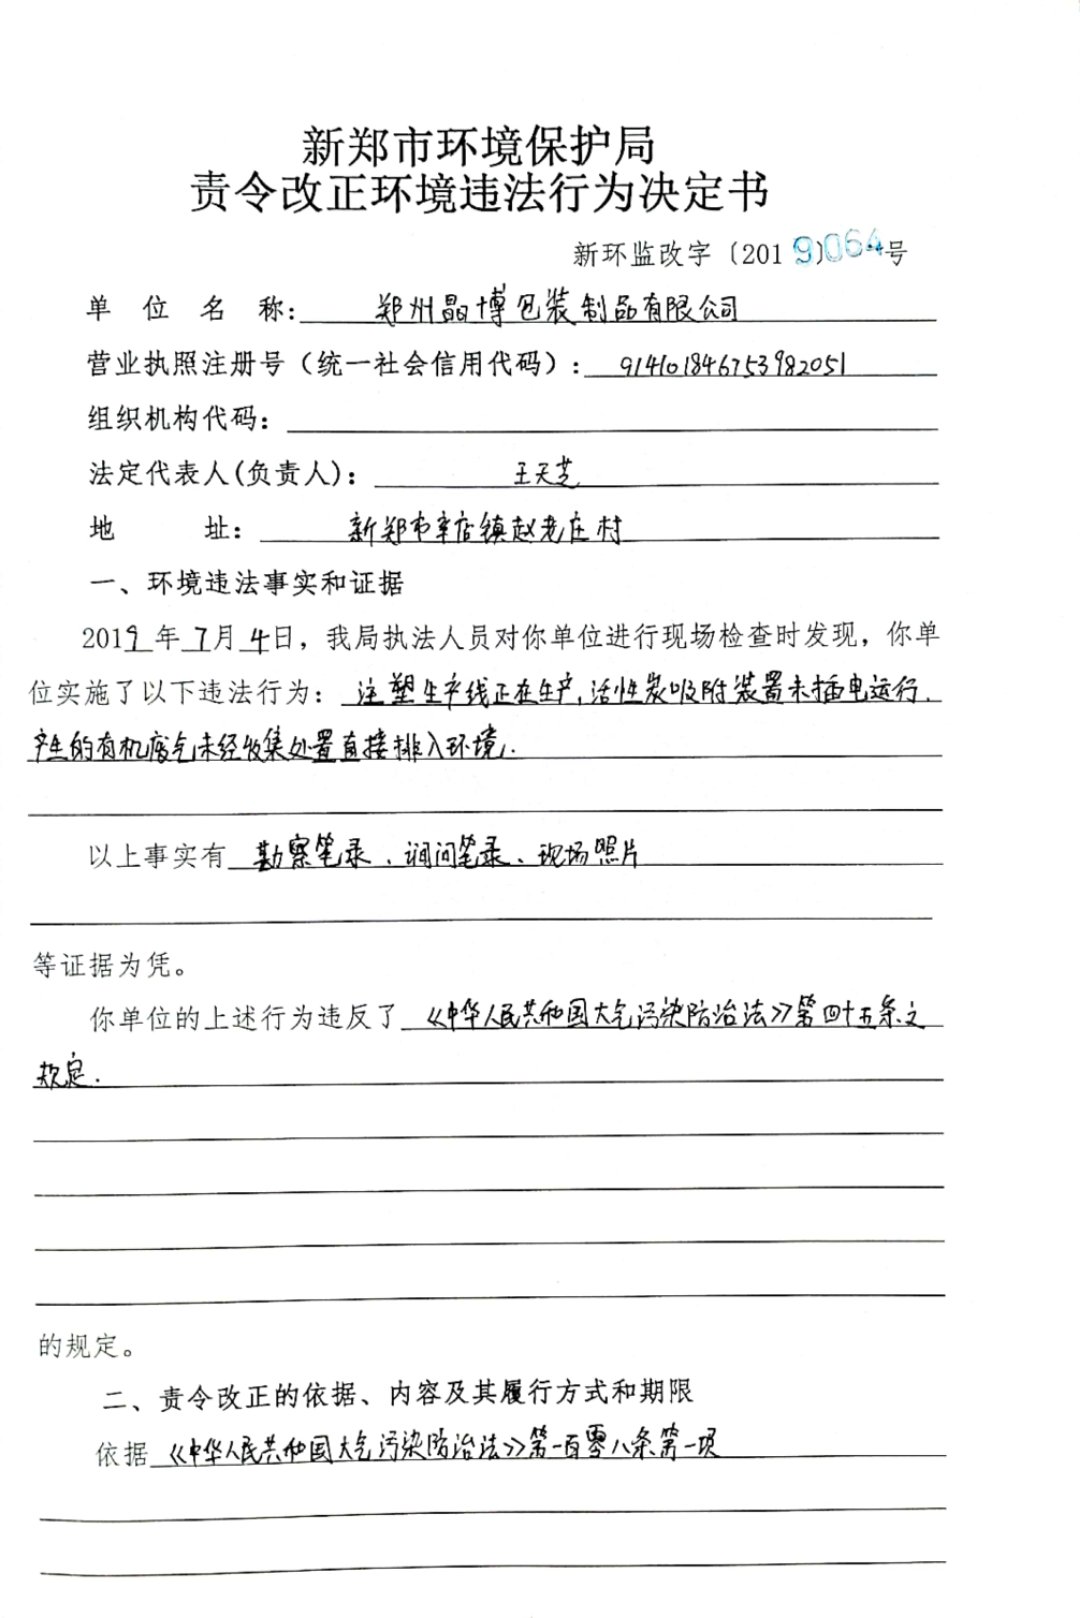 新郑市环境保护局
责令改正环境违法行为决定书
新环监改字〔2019〕064号
单位名称：郑州晶博包装制品有限公司
营业执照注册号（统一社会信用代码）：914101846753982051
组织机构代码：
法定代表人(负责人)：王天芝
地址：新郑市辛店镇赵老庄村
一、环境违法事实和证据
2019年7月4日，我局执法人员对你单位进行现场检查时发现，你单
位实施了以下违法行为：注塑生产线正在生产,活性炭吸附装置未插电运行.
产生的有机废气未经收集处置直接排入环境.
以上事实有勘察笔录、调问笔录、现场照片
等证据为凭。
你单位的上述行为违反了《中华人民共和国大气污染防治法》第四十五条之
规定.
的规定。
二、责令改正的依据、内容及其履行方式和期限
依据《中华人民共和国大气污染防治法》第一百零八条第一项